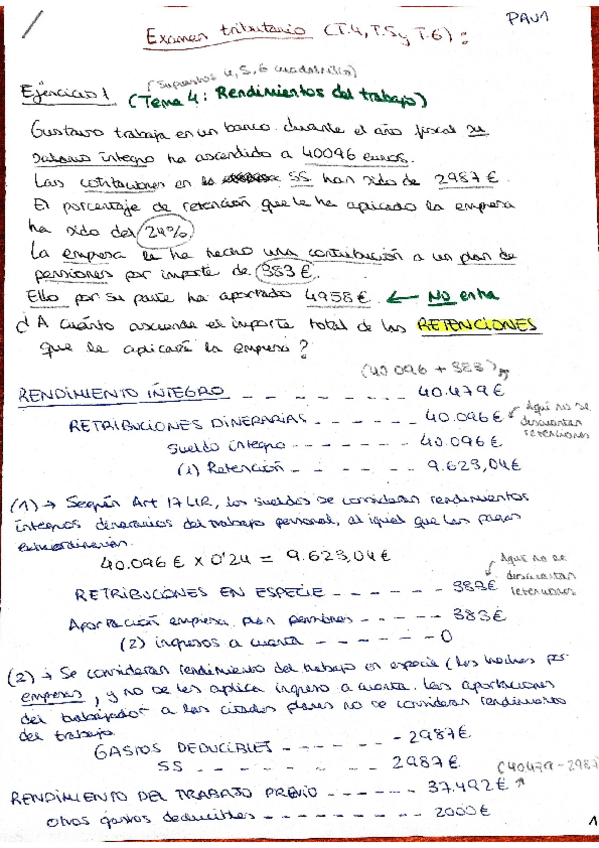 PAU1
Examen tributario (T.4, T.5 y T.6):
(Supuestos 4, 5, 6 cuadernillo)
Ejercicio 1 (Tema 4: Rendimientos del trabajo)
Gustavo trabaja en un banco. durante el año fiscal su
salario íntegro ha ascendido a 40096 euros.
Las cotitaciones en SS han sido de 2987 €.
El porcentaje de retención que le ha aplicado la empresa
ha sido del 24%.
La empresa le ha hecho una contribución a un plan de
pensiones por importe de 383 €.
Ello por su parte ha aportado 4958 €. ← No entra
¿A cuánto asciende el importe total de las RETENCIONES
que le aplicará la empresa?
(40.096 + 383)
RENDIMIENTO ÍNTEGRO - - - - - - - - 40.479 €
RETRIBUCIONES DINERARIAS - - - - - 40.096 € Aquí no se descuentan retenciones
Sueldo íntegro - - - - - - 40.096 €
(1) Retención - - - - - 9.623,04 €
(1) → Según Art 17 LIR, los sueldos se consideran rendimientos
íntegros dinerarios del trabajo personal, al igual que las pagas
extraordinarias.
40.096 € x 0'24 = 9.623,04 €
RETRIBUCIONES EN ESPECIE - - - - - 383 € Aquí no se descuentan retenciones
Aportación empresa plan pensiones - - - - 383 €
(2) ingresos a cuenta - - - - - - 0
(2) → Se consideran rendimiento del trabajo en especie (los hechos por
empresas), y no se les aplica ingreso a cuenta. Las aportaciones
del trabajador a los citados planes no se consideran rendimiento
del trabajo.
GASTOS DEDUCIBLES - - - - - - 2987 €
SS - - - - - - - - - - 2987 €
(40479 - 2987)
RENDIMIENTO DEL TRABAJO PREVIO - - - - - 37.492 €
Otros gastos deducibles - - - - - - - - 2000 €
1